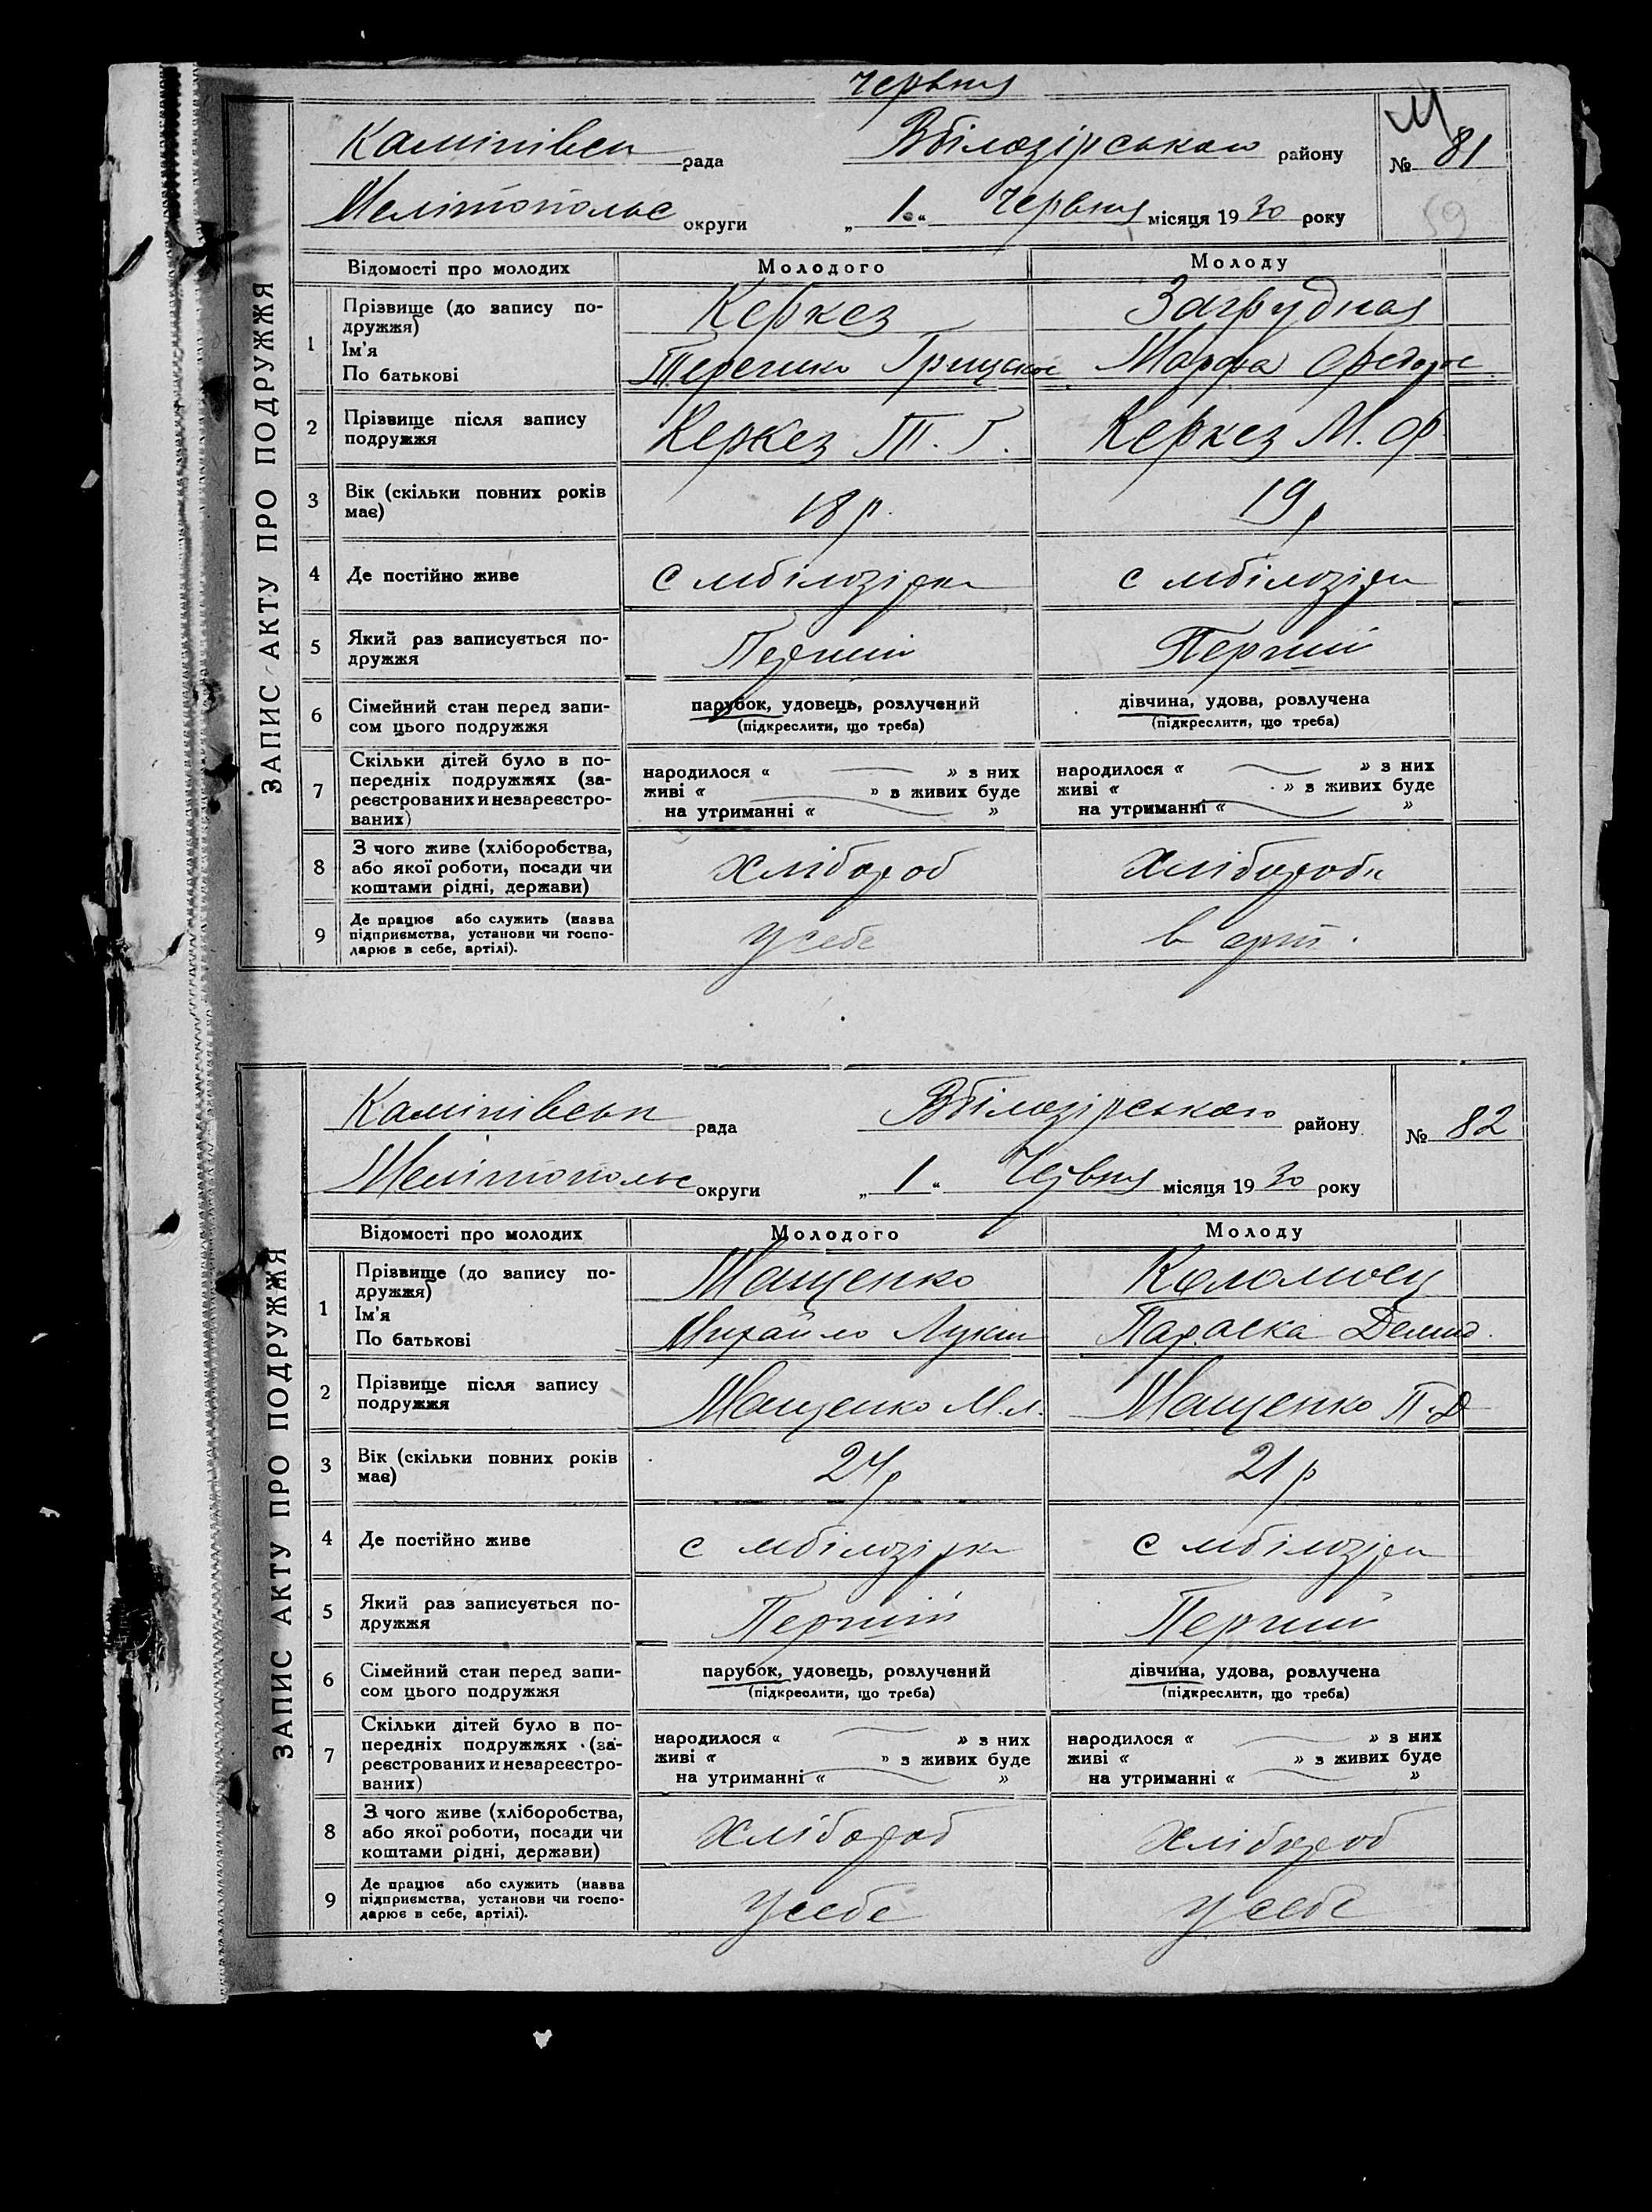 червня
М
Камінівсь рада Вбілозірського району № 81
Мелітопольс округи „ 1 “ Червня місяця 1930 року
59
ЗАПИС АКТУ ПРО ПОДРУЖЖЯ
Відомості про молодих Молодого Молоду
1 Прізвище (до запису по-
дружжя) Керкез Загрудная
Ім'я
По батькові Терешко Грицьков Марфа Федор
2 Прізвище після запису
подружжя Керкез Т. Г. Керкез М. Ф
3 Вік (скільки повних років
має) 18 р. 19 р
4 Де постійно живе с мбілозірка с мбілозірка
5 Який раз записується по-
дружжя Перший Перший
6 Сімейний стан перед запи-
сом цього подружжя парубок, удовець, розлучений дівчина, удова, розлучена
(підкреслити, що треба) (підкреслити, що треба)
7 Скільки дітей було в по-
передніх подружжях (за-
реєстрованих и незареєстро-
ваних)
народилося « » з них народилося « » з них
живі « » з живих буде живі « » з живих буде
на утриманні « » на утриманні « »
8 З чого живе (хліборобства,
або якої роботи, посади чи
коштами рідні, держави) Хлібороб Хлібороби
9 Де працює або служить (назва
підприємства, установи чи госпо-
дарює в себе, артілі). У себе в арт.
Камінівськ рада Вбілозірського району № 82
Мелітопольс округи „ 1 “ Червня місяця 1930 року
ЗАПИС АКТУ ПРО ПОДРУЖЖЯ
Відомості про молодих Молодого Молоду
1 Прізвище (до запису по-
дружжя) Мащенко Коломоец
Ім'я
По батькові Михайло Лукич Параска Демид.
2 Прізвище після запису
подружжя Мащенко М.Л. Мащенко П.Д
3 Вік (скільки повних років
має) 24 р 21 р
4 Де постійно живе с мбілозірка с мбілозірка
5 Який раз записується по-
дружжя Перший Перший
6 Сімейний стан перед запи-
сом цього подружжя парубок, удовець, розлучений дівчина, удова, розлучена
(підкреслити, що треба) (підкреслити, що треба)
7 Скільки дітей було в по-
передніх подружжях (за-
реєстрованих и незареєстро-
ваних)
народилося « » з них народилося « » з них
живі « » з живих буде живі « » з живих буде
на утриманні « » на утриманні « »
8 З чого живе (хліборобства,
або якої роботи, посади чи
коштами рідні, держави) Хлібороб Хлібороб
9 Де працює або служить (назва
підприємства, установи чи госпо-
дарює в себе, артілі). У себе У себе